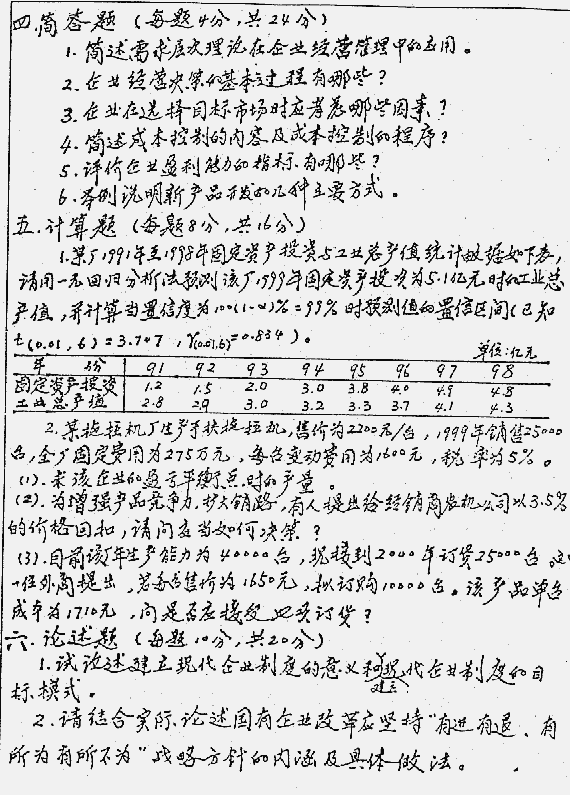 四.简答题（每题4分,共24分）
1.简述需求层次理论在企业经营管理中的应用。
2.企业经营决策的基本过程有哪些？
3.企业在选择目标市场时应考虑哪些因素？
4.简述成本控制的内容及成本控制的程序？
5.评价企业盈利能力的指标有哪些？
6.举例说明新产品开发的几种主要方式。
五.计算题（每题8分,共16分）
1.某厂1991年至1998年固定资产投资与工业总产值统计数据如下表,
请用一元回归分析法预测该厂1999年固定资产投资为5.1亿元时的工业总
产值,并计算当置信度为100(1-α)%=99%时预测值的置信区间(已知
t(0.01,6)=3.707,γ(0.01,6)=0.834)。
单位:亿元
年份 91 92 93 94 95 96 97 98
固定资产投资 1.2 1.5 2.0 3.0 3.8 4.0 4.9 4.8
工业总产值 2.8 2.9 3.0 3.2 3.3 3.7 4.1 4.3
2.某拖拉机厂生产手扶拖拉机,售价为2200元/台,1999年销售25000
台,全厂固定费用为275万元,每台变动费用为1600元,税率为5%。
(1).求该企业的盈亏平衡点时的产量。
(2).为增强产品竞争力,扩大销路,有人提出给经销商农机公司以3.5%
的价格回扣,请问应当如何决策？
(3).目前该厂年生产能力为40000台,现接到2000年订货25000台。这
一位外商提出,若每台售价为1650元,拟订购10000台。该产品单台
成本为1710元,问是否应接受此项订货？
六.论述题（每题10分,共20分）
1.试论述建立现代企业制度的意义和建立现代企业制度的目
标模式。
2.请结合实际论述国有企业改革应坚持"有进有退、有
所为有所不为"战略方针的内涵及具体做法。